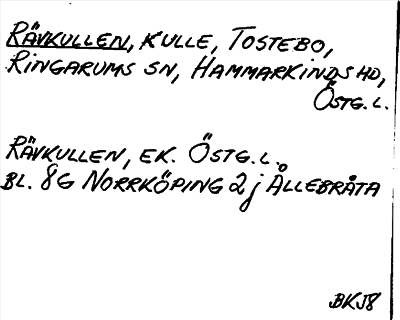 RÄVKULLEN, KULLE, TOSTEBO,
RINGARUMS SN, HAMMARKINDS HD,
ÖSTG. L.
RÄVKULLEN, EK. ÖSTG. L.
BL. 8G NORRKÖPING 2j ÅLLEBRÅTA
BKJ8